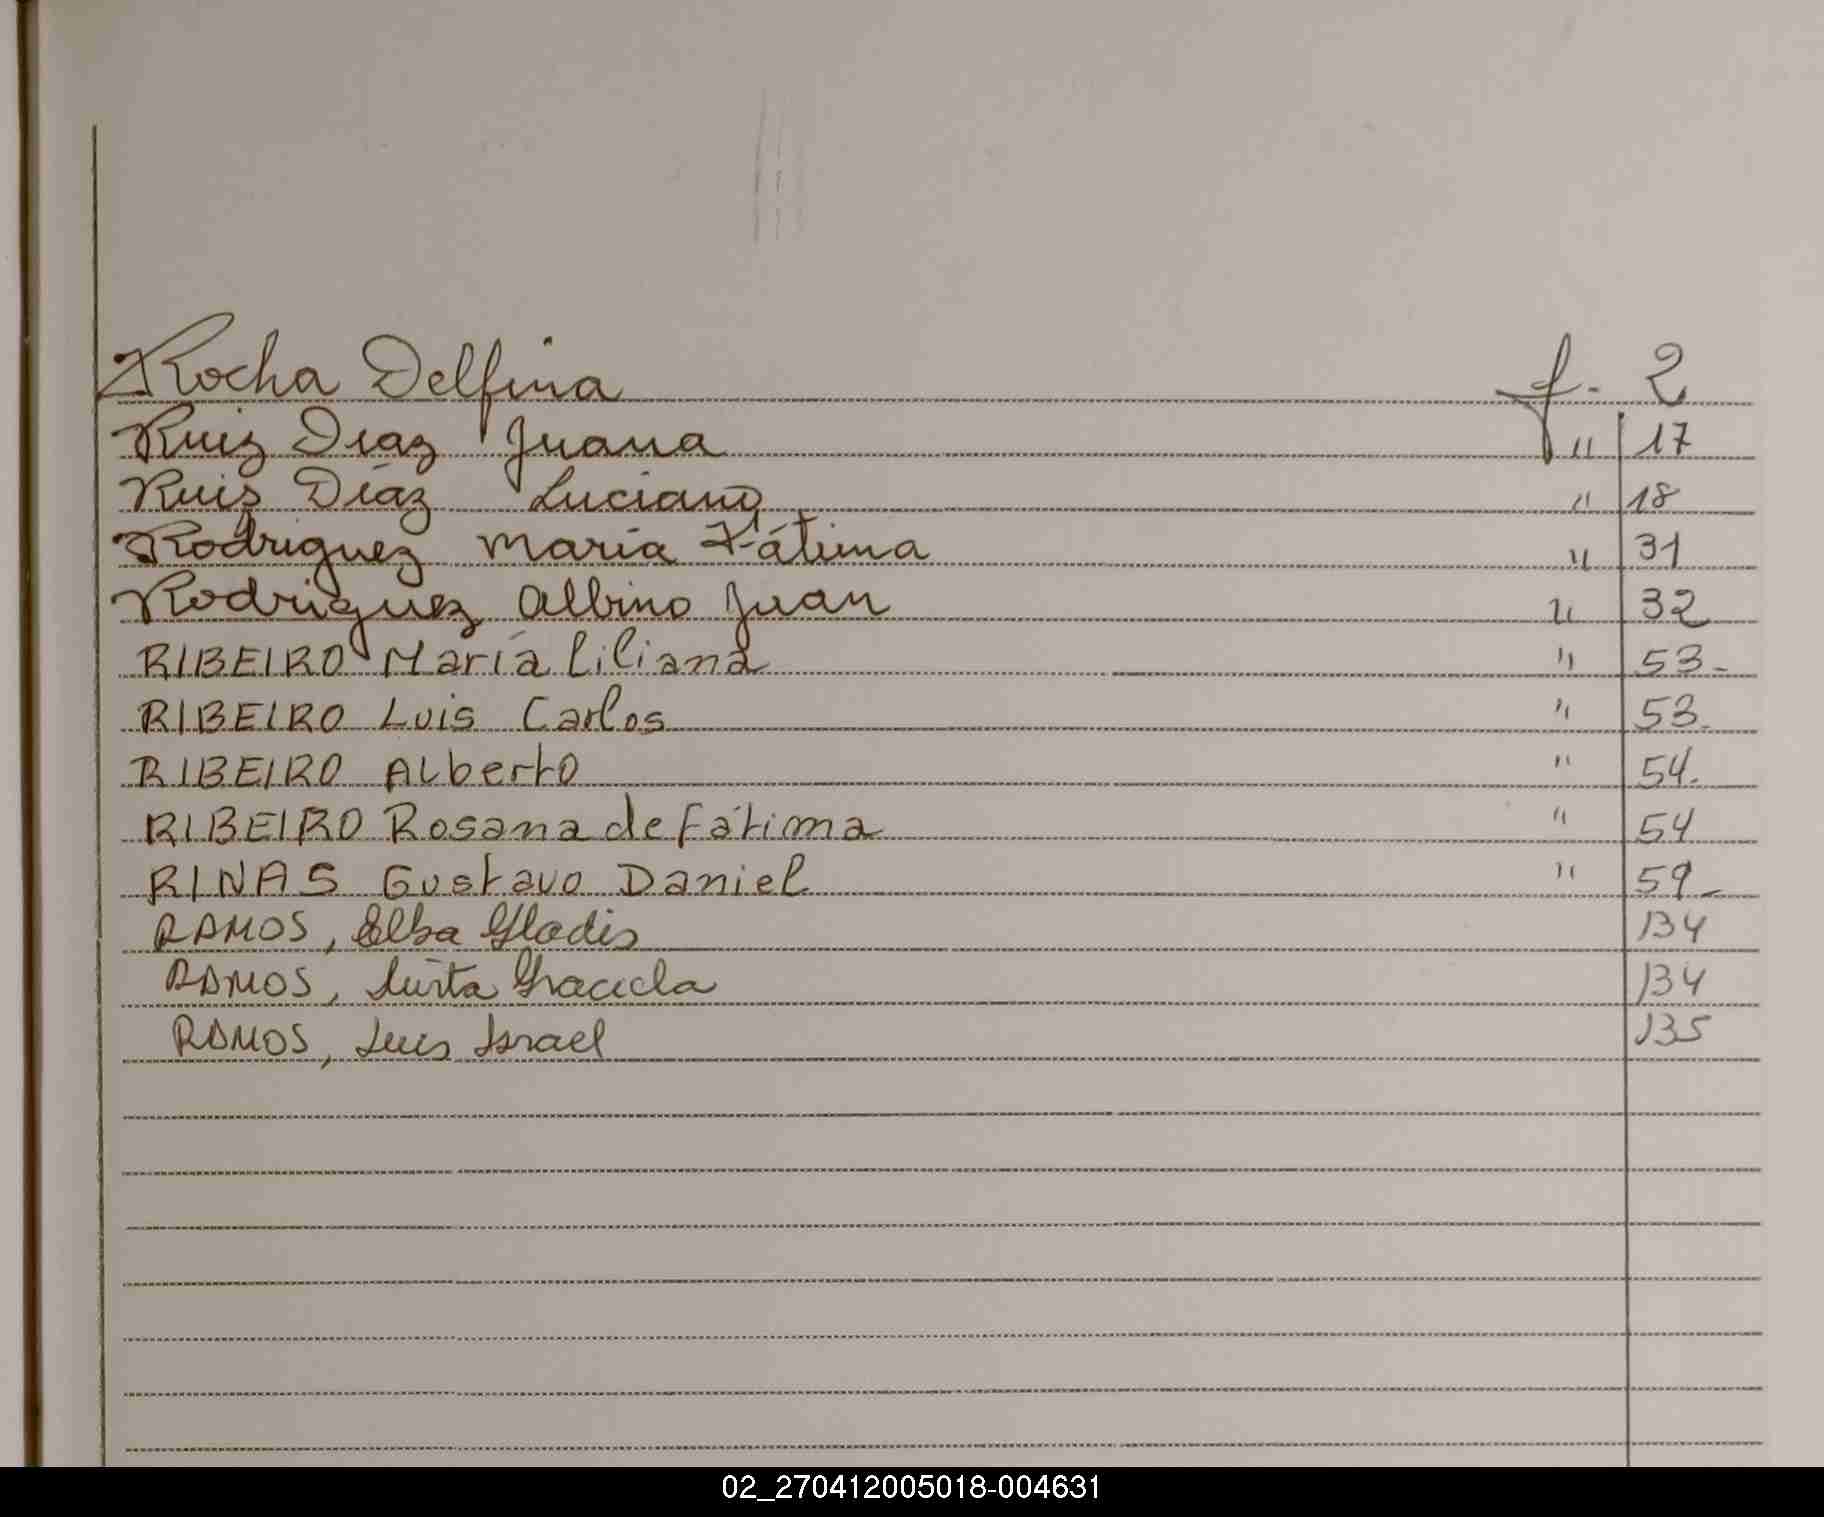 Rocha Delfina f. 2
Ruiz Diaz Juana " 17
Ruis Díaz Luciano " 18
Rodriguez María Fátima " 31
Rodriguez Albino Juan " 32
RIBEIRO María Liliana " 53-
RIBEIRO Luis Carlos " 53-
RIBEIRO Alberto " 54.
RIBEIRO Rosana de Fátima " 54
RINAS Gustavo Daniel " 59-
RAMOS, Elba Gladis 134
RAMOS, Mirta Graciela 134
RAMOS, Luis Israel 135
02_270412005018-004631